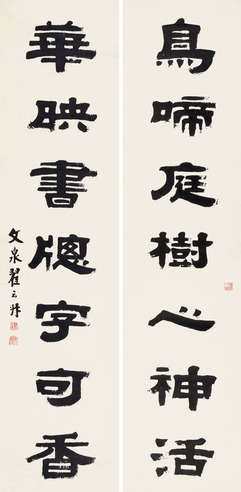 鳥啼庭樹心神活
華映書牕字可香
文泉翟云升